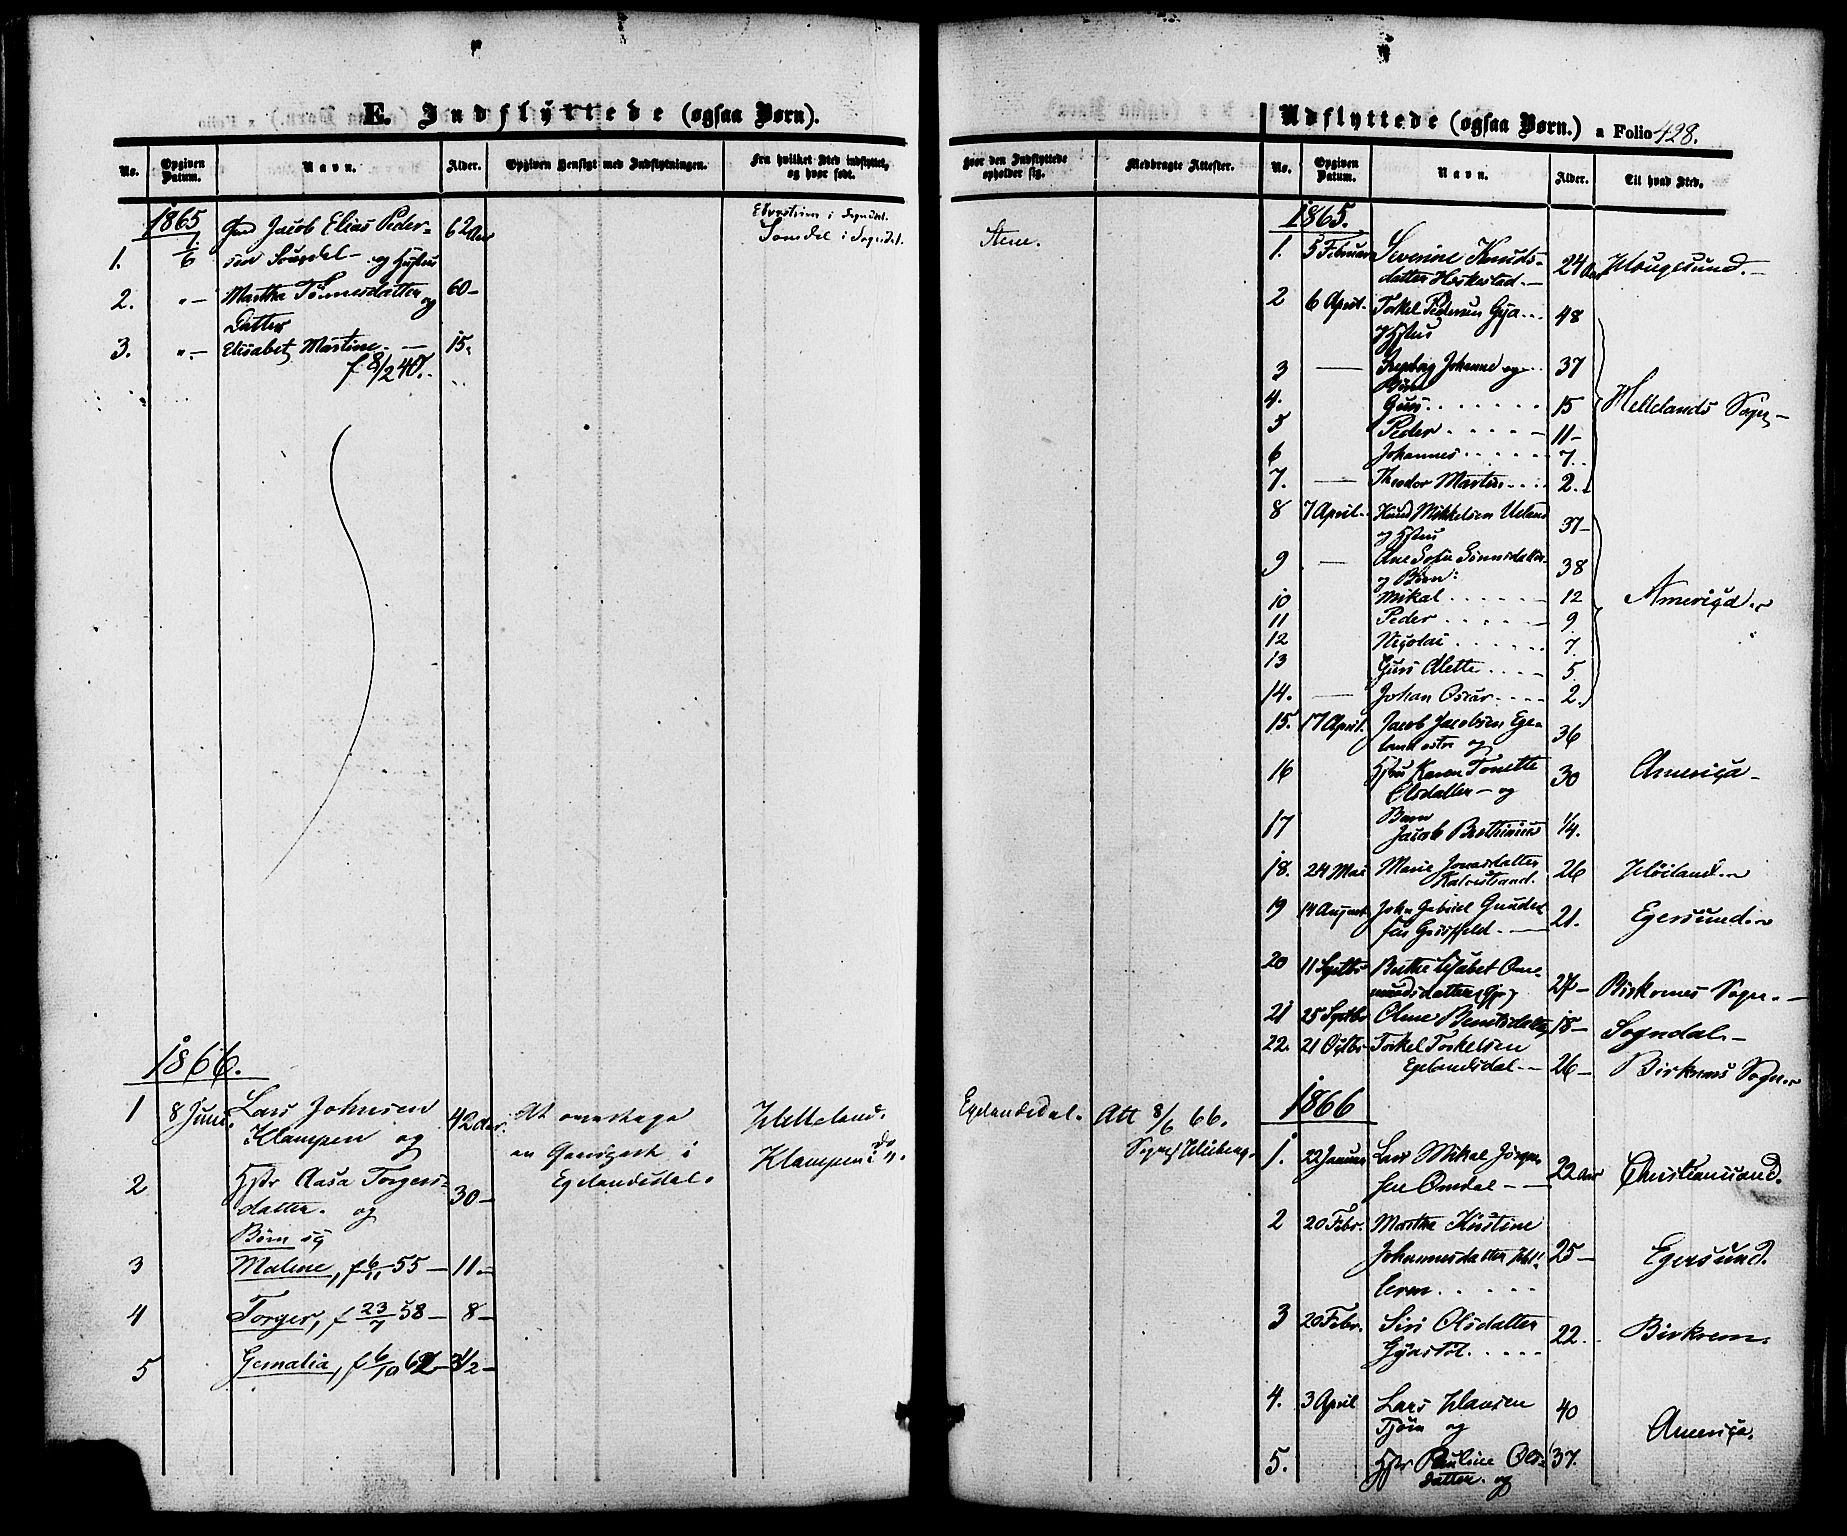 E. Indflyttede (ogsaa Børn).
No.
Opgiven Datum.
Navn.
Alder.
Opgiven Hensigt med Indflytningen.
Fra hvilket Sted indflyttet, og hvor født.
1865
1. 1/6 Jacob Elias Peder-
sen - og Hustru
62 Aar
i Sogndal.
i Sogndal.
2. "- Martha Tønnesdatter og 60-
Datter
3. "- Elisabet Martine. - 15.
f. 8/2
1866.
1 8 Juni. Lars Johnsen
Klampen og
42 Aar.
At overtage
en Gaardpart i
Egelandsdal.
Helleland.
Klampen i do.
2 Hstr Aasa Torgers-
datter. og
30-
Børn
3 Malene, f 6/11 55 - 11.-
4 Torger, f 23/7 58 - 8-
5 Gemalia, f 6/10 62 - 3 1/2 -
Hvor den Indflyttede opholder sig.
Medbragte Attester.
Stene.
Egelandsdal. Att 8/6 66.
Udflyttede (ogsaa Børn.) a Folio 428.
No.
Opgiven Datum.
Navn.
Alder.
Til hvad Sted.
1865.
1. 5 Februar Severine Knuds-
datter Heskestad. -
24 Aar Hougesund. -
2 6 April. Torkel Pedersen Gya
og Hstru
48
3 Ingeborg Johanne og
Børn
37
4. Guri. 15
Hellelands Sogn -
5 Peder 11-
6 Johannes 7.
7. Theodor Martin 2.
8 7 April. Knud Mikkelsen Ueland
og Hstru
37-
9 Ane Sofie
og Børn:
38
10 Mikal 12
America.
11 Peder 9
12 Nicolai 7.
13 Guri Alette 5.
14. Johan Oscar 2.
15. 17 April. Jacob Jacobsen Ege-
land østre og
36
16 Hstru Karen Tonette
Olsdatter - og
30
America -
17 Barn
Jacob
1/4.
18. 24 Mai Marie Jonasdatter
Kalvestrand.
26 Høiland.
19 14 August John Gabriel
21. Egersund.
20 11 Septbr Berthe Elisabet Om-
mundsdatter
27- Birkrems Sogn. -
21 25 Septbr Oline Berntsdatter 18- Sogndal -
22. 21 Octbr Torkel Torkelsen
Egelandsdal -
26- Birkrems Sogn.
1866
1. 22 Januar Lars Mikal Jørgen-
sen Omdal -
22 Aar Christiansand.
2 20 Febr. Martha Kristine
Johannesdatter Hel-
leren
25- Egersund.
3 20 Febr. Siri Olsdatter
22. Birkrem.
4. 3 April Lars Hansen
Tjørn og
40
America.
5. Hstr Pauline Ols-
datter. og
37.